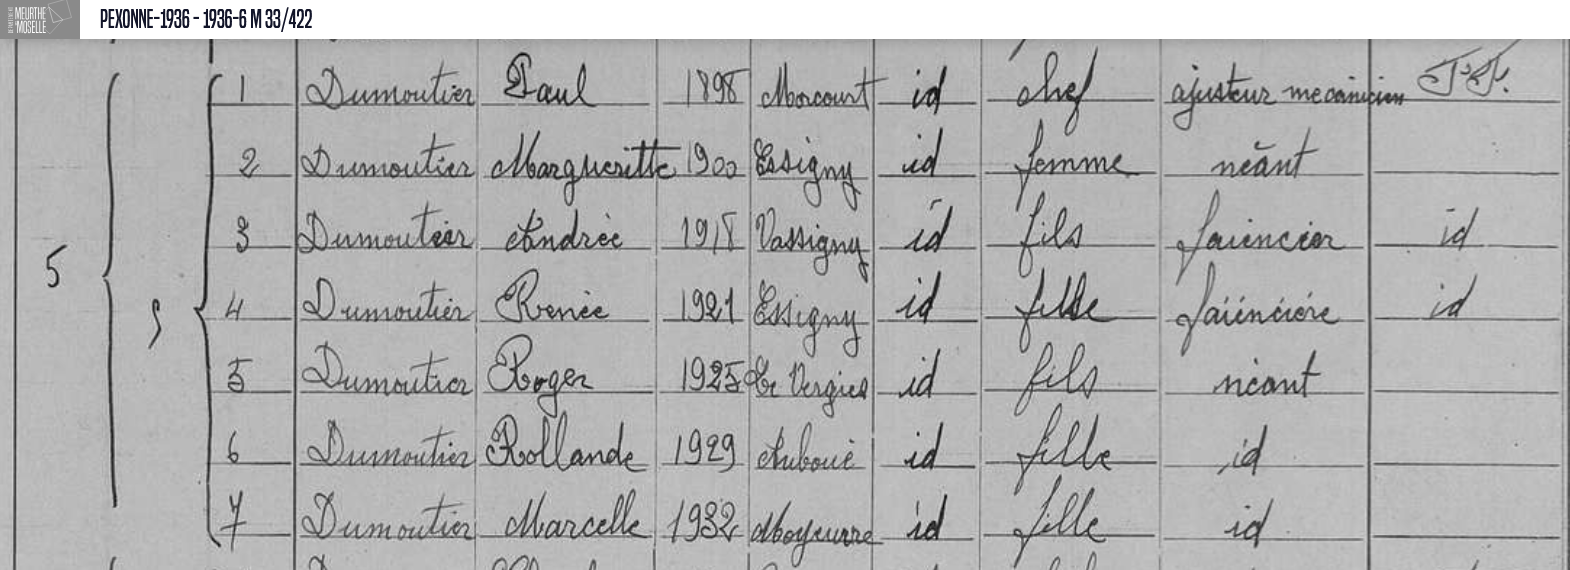 MEURTHE & MOSELLE
PEXONNE-1936 - 1936-6 M 33/422
1 Dumoutier Paul 1898 Morcourt id chef ajusteur mecanicien
2 Dumoutier Margueritte 1900 Essigny id femme néant
3 Dumoutier Andrée 1918 Vassigny id fils faiencier id
5 5 4 Dumoutier Renée 1921 Essigny id fille faiencière id
5 Dumoutier Roger 1925 Le Vergies id fils néant
6 Dumoutier Rollande 1929 Auboué id fille id
7 Dumoutier Marcelle 1932 Moyeuvre id fille id